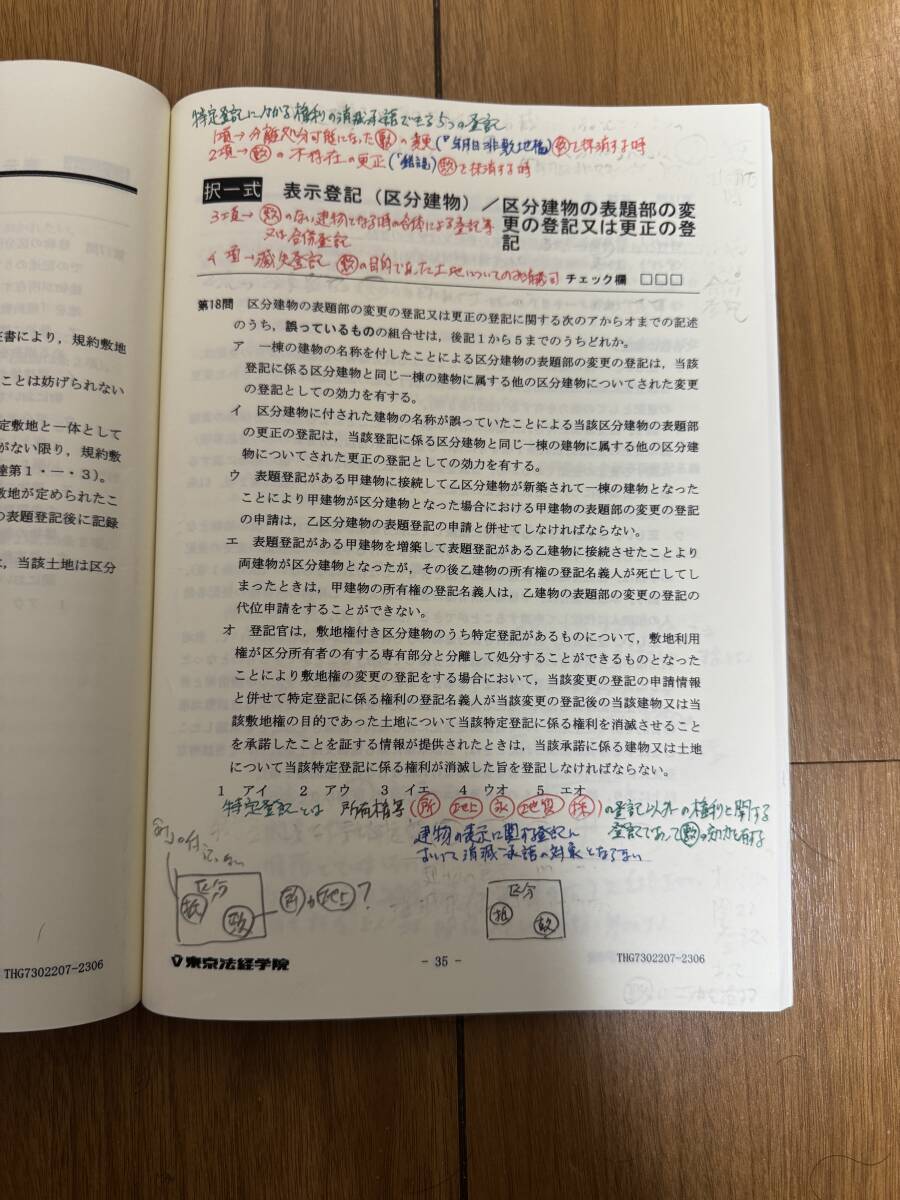 特定登記に係る権利の消滅承諾できる5つの登記
1項→分離処分可能になった敷の変更("年月日非敷地権)敷を抹消する時
2項→敷の不存在の更正("錯誤)敷を抹消する時
択一式 表示登記（区分建物）／区分建物の表題部の変更の登記又は更正の登記
3項→敷のない建物となる時の合体による登記等
又は合併登記
4項→滅失登記 敷の目的であった土地についての
チェック欄 □□□
第18問 区分建物の表題部の変更の登記又は更正の登記に関する次のアからオまでの記述
のうち，誤っているものの組合せは，後記１から５までのうちどれか。
ア 一棟の建物の名称を付したことによる区分建物の表題部の変更の登記は，当該
登記に係る区分建物と同じ一棟の建物に属する他の区分建物についてされた変更
の登記としての効力を有する。
イ 区分建物に付された建物の名称が誤っていたことによる当該区分建物の表題部
の更正の登記は，当該登記に係る区分建物と同じ一棟の建物に属する他の区分建
物についてされた更正の登記としての効力を有する。
ウ 表題登記がある甲建物に接続して乙区分建物が新築されて一棟の建物となった
ことにより甲建物が区分建物となった場合における甲建物の表題部の変更の登記
の申請は，乙区分建物の表題登記の申請と併せてしなければならない。
エ 表題登記がある甲建物を増築して表題登記がある乙建物に接続させたことより
両建物が区分建物となったが，その後乙建物の所有権の登記名義人が死亡してし
まったときは，甲建物の所有権の登記名義人は，乙建物の表題部の変更の登記の
代位申請をすることができない。
オ 登記官は，敷地権付き区分建物のうち特定登記があるものについて，敷地利用
権が区分所有者の有する専有部分と分離して処分することができるものとなった
ことにより敷地権の変更の登記をする場合において，当該変更の登記の申請情報
と併せて特定登記に係る権利の登記名義人が当該変更の登記後の当該建物又は当
該敷地権の目的であった土地について当該特定登記に係る権利を消滅させること
を承諾したことを証する情報が提供されたときは，当該承諾に係る建物又は土地
について当該特定登記に係る権利が消滅した旨を登記しなければならない。
１ アイ ２ アウ ３ イエ ４ ウオ ５ エオ
特定登記とは 所有権等(所 地上 永 地質 採)の登記以外の権利に関する
登記であって敷の効力を有する
建物の表示に関する登記に
おいて消滅承諾の対象となるない
区分
抵
敷
所か地上？
区分
抵
敷
東京法経学院
- 35 -
THG7302207-2306
証書により，規約敷地
ことは妨げられない
定敷地と一体として
がない限り，規約敷
達第１・一・３）。
敷地が定められたこ
の表題登記後に記録
，当該土地は区分
THG7302207-2306